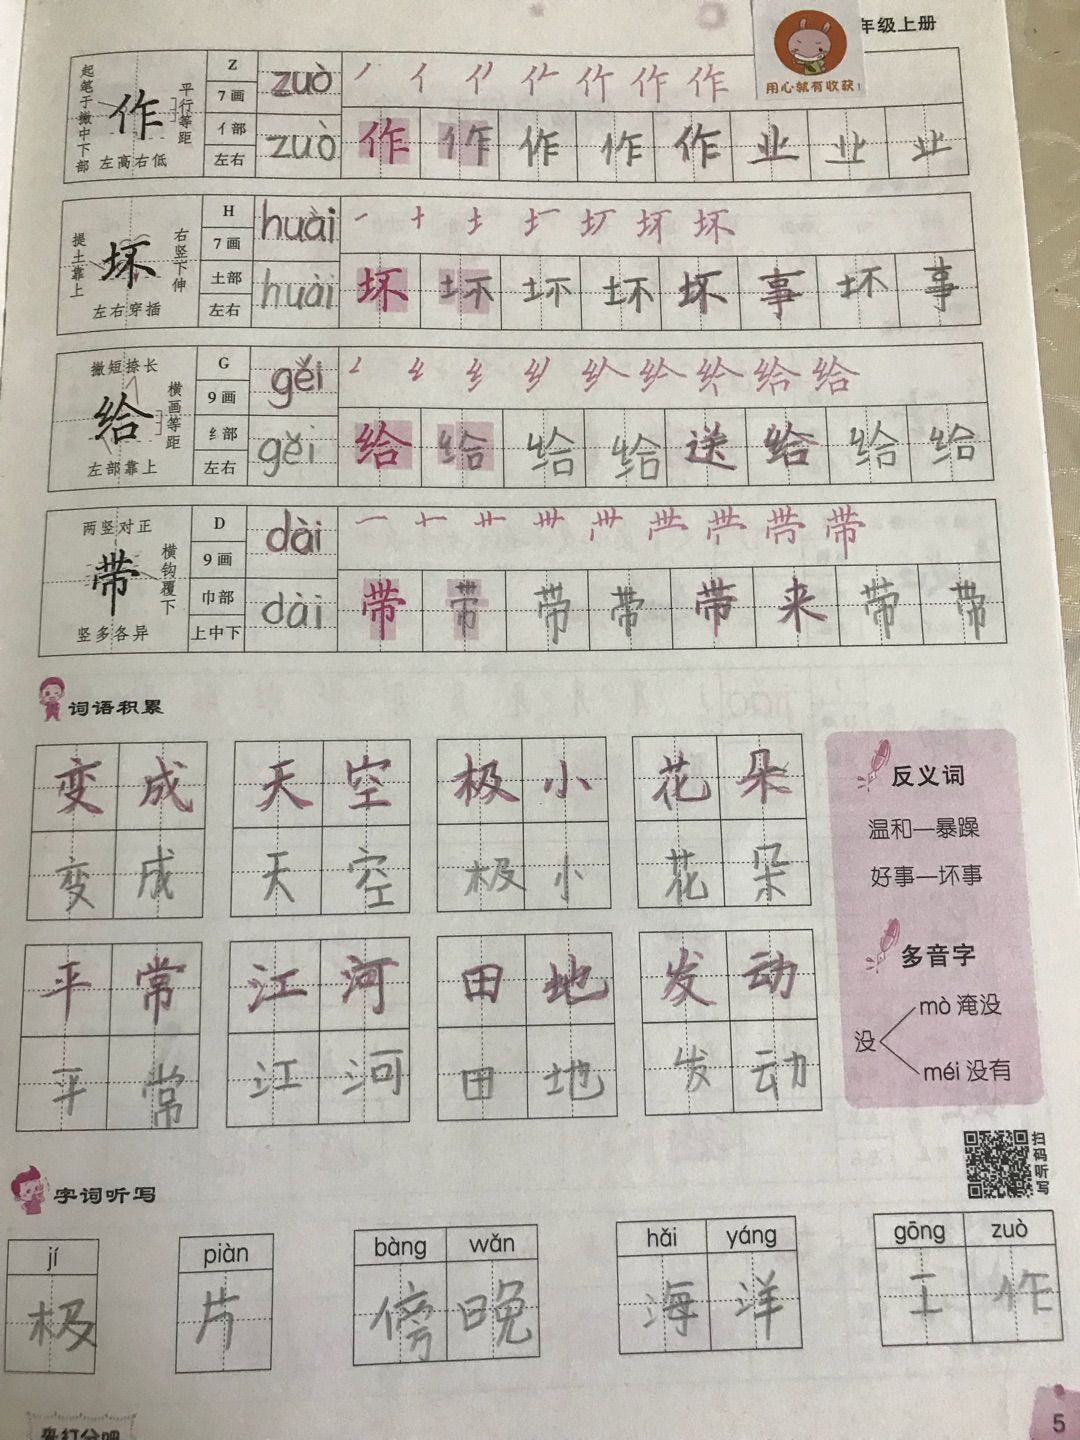 年级上册
用心就有收获!
起笔于撇中下部
作
平行等距
左高右低
Z
7画
亻部
左右
zuò
zuò
丿 亻 作 作
作 作 作 作 作 业 业 业
提土靠上
坏
右竖下伸
左右穿插
H
7画
土部
左右
huài
huài
一 十 土 坏 坏
坏 坏 坏 坏 坏 事 坏 事
撇短捺长
给
横画等距
左部靠上
G
9画
纟部
左右
gěi
gěi
纟 给 给
给 给 给 给 送 给 给 给
两竖对正
带
横钩覆下
竖多各异
D
9画
巾部
上中下
dài
dài
一 十 卅 带
带 带 带 带 带 来 带 带
词语积累
变成 天空 极小 花朵
变成 天空 极小 花朵
平常 江河 田地 发动
平常 江河 田地 发动
反义词
温和—暴躁
好事—坏事
多音字
没
mò 淹没
méi 没有
扫码听写
字词听写
jí piàn bàng wǎn hǎi yáng gōng zuò
极 片 傍晚 海洋 工作
5